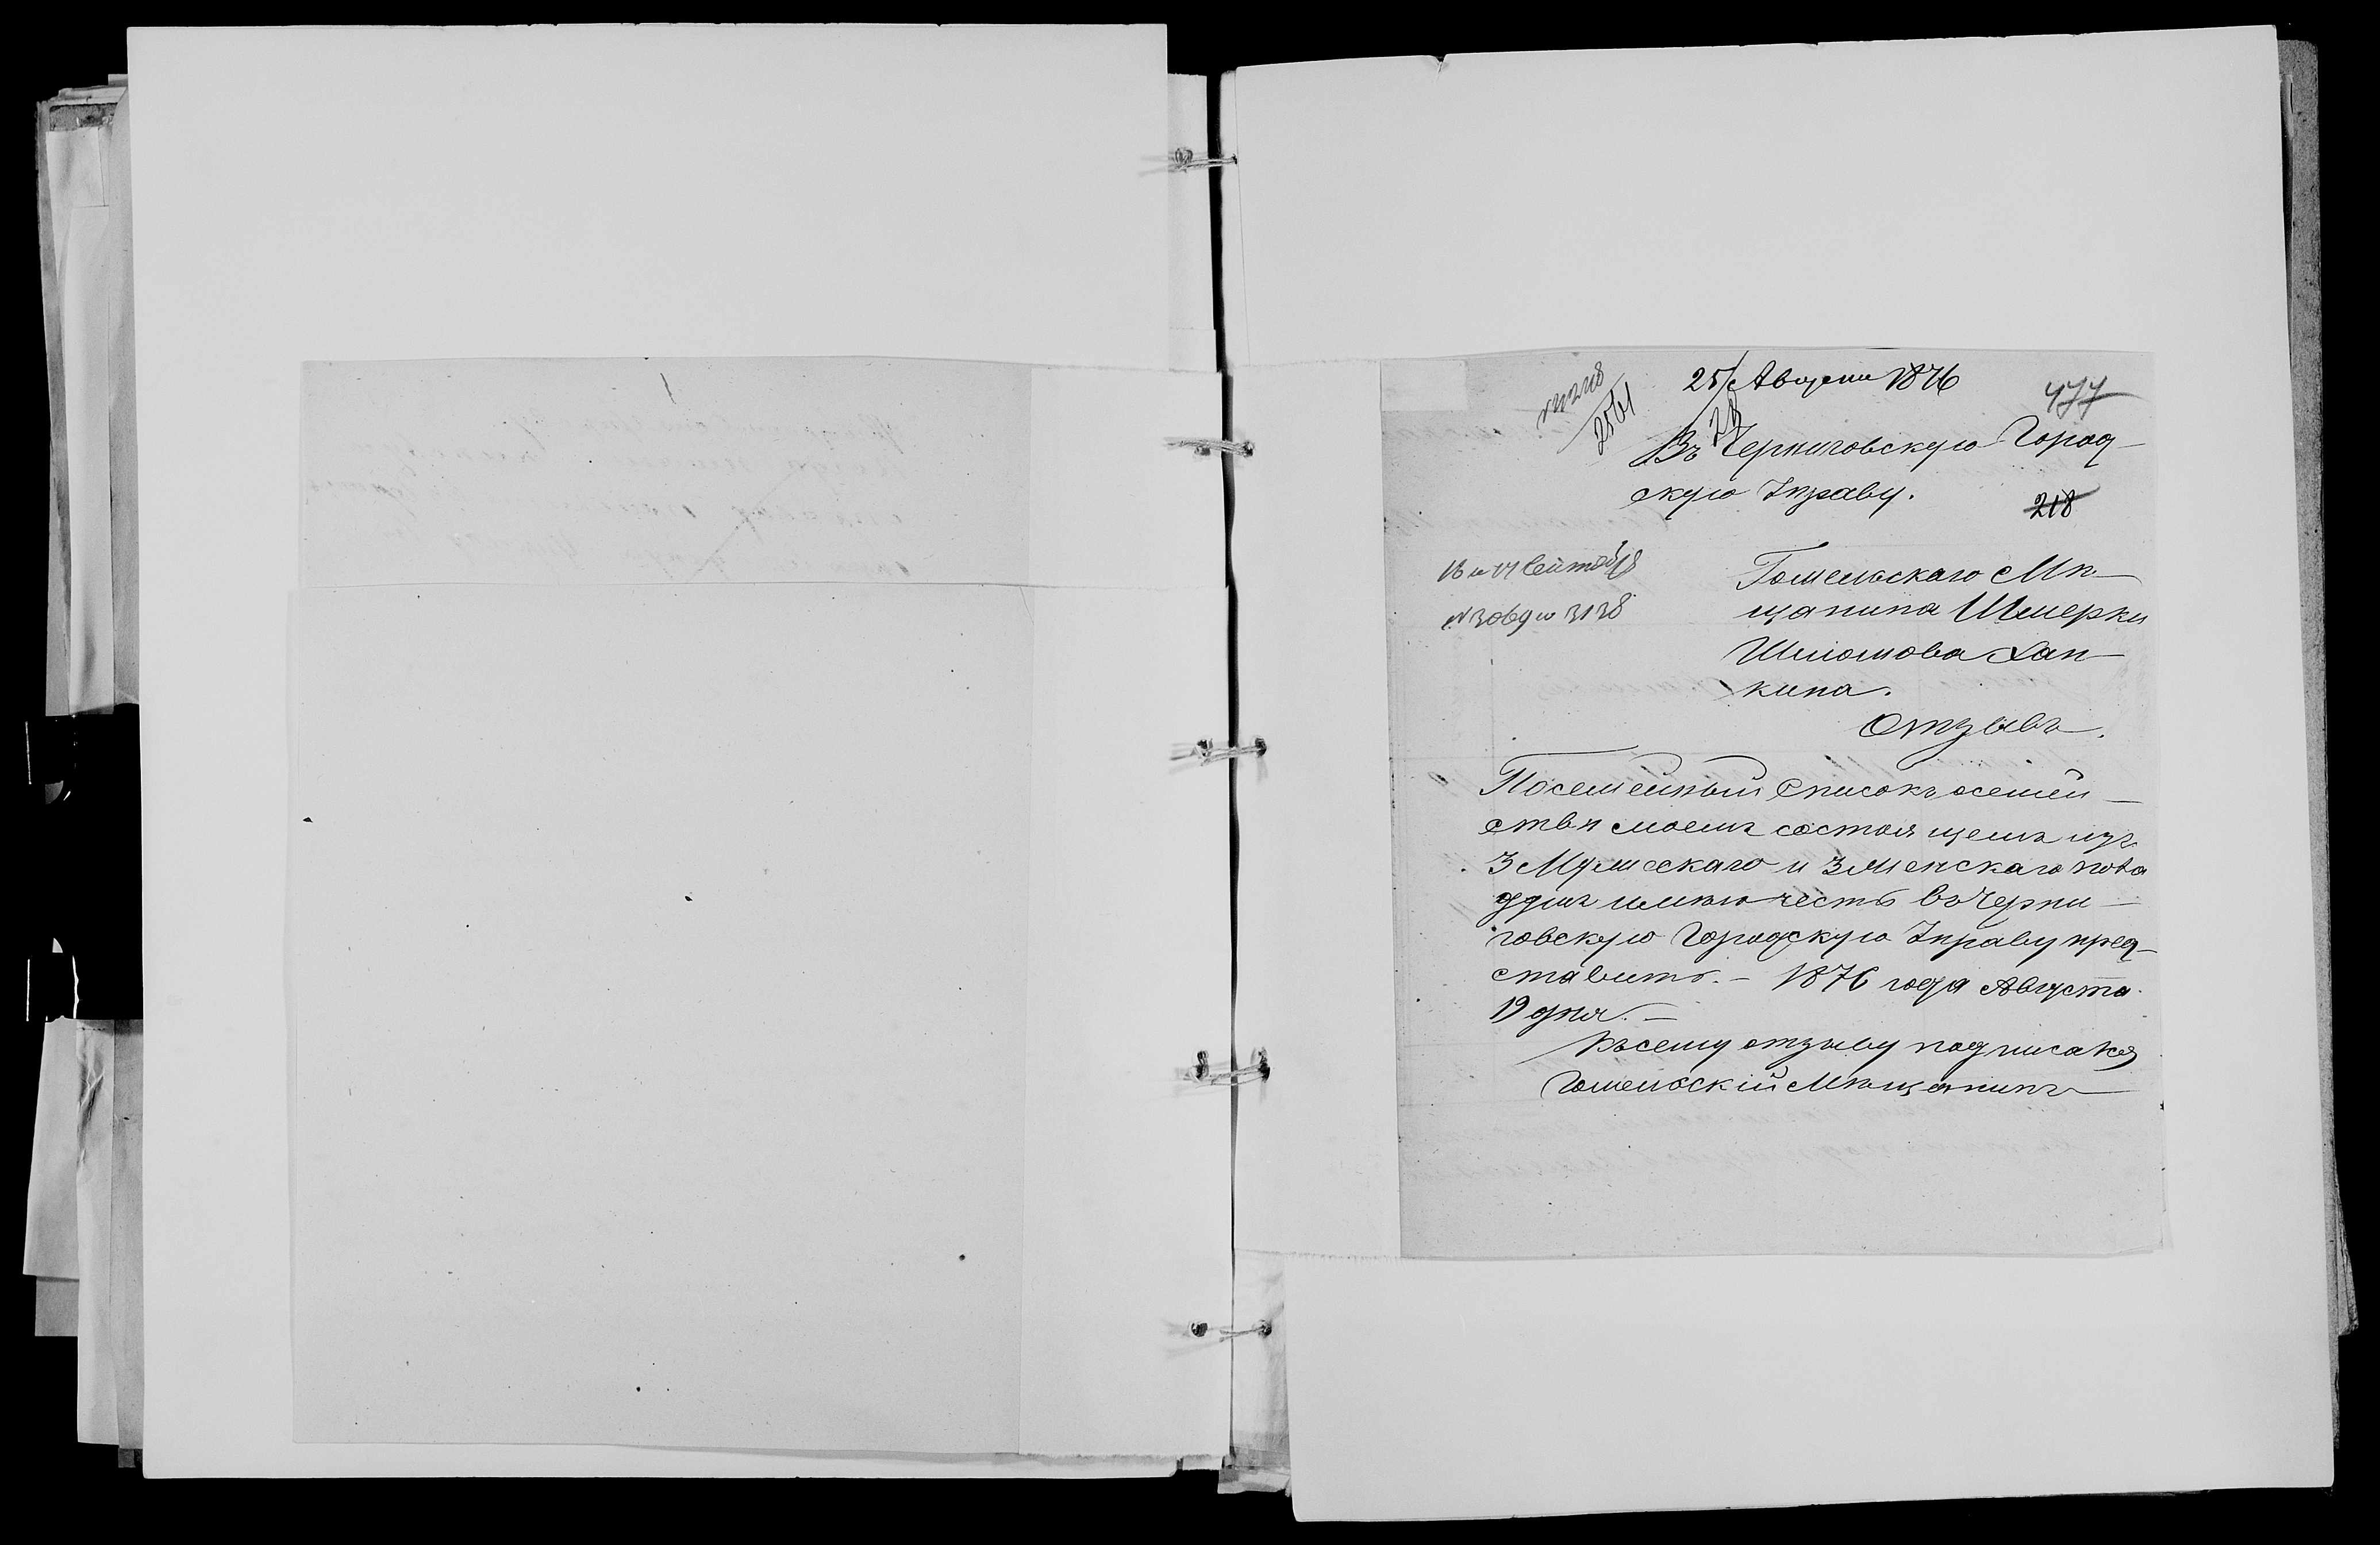 25 Августа 1876
477
2561
28
Въ Черниговскую Город-
скую Управу.
218
16 и 17 Сентября
№ 3069 и 3138
Гомельскаго Мѣ-
щанина Шмерки
Шліомова Хан-
кина.
Отзывъ.
Посемейный списокъ осемей-
ствѣ моемъ состоящемъ изъ
3 Мужескаго и 3 Женскаго пола
душъ имѣю честь въ Черни-
говскую Городскую Управу пред-
ставить. - 1876 года Августа
19 дня. -
Къ сему отзыву подписался
Гомельскій Мѣщанинъ